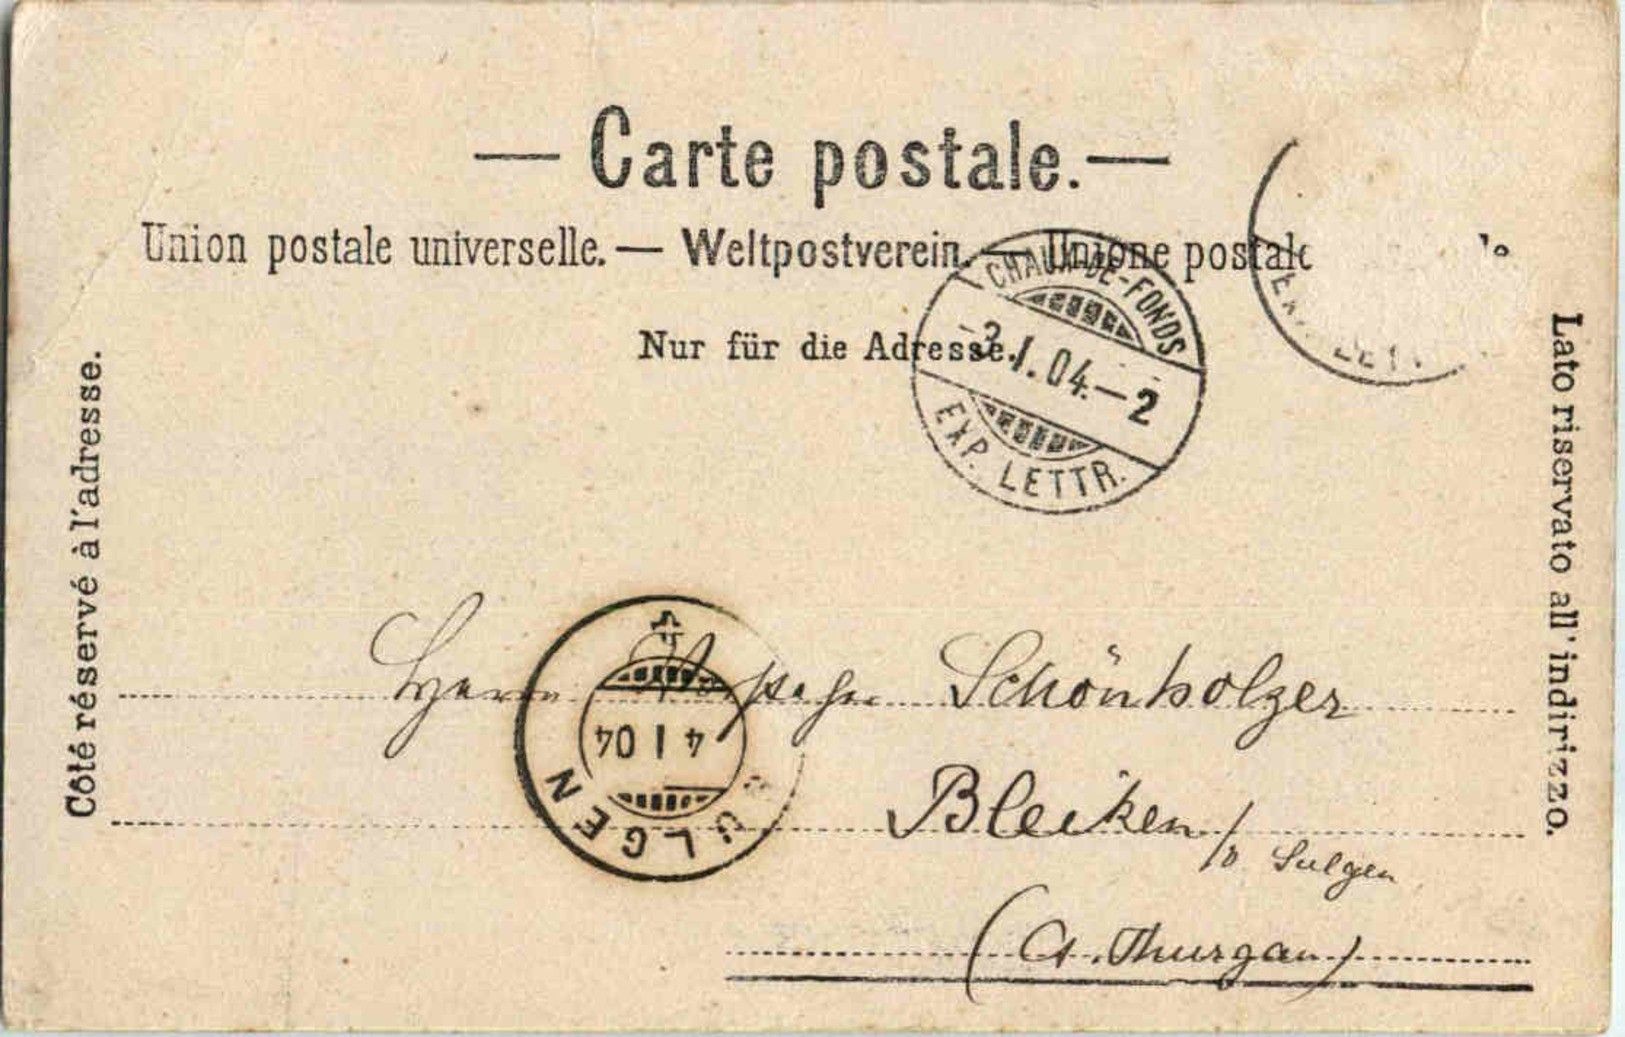 — Carte postale. —
Union postale universelle. — Weltpostverein. — Unione postale
Nur für die Adresse.
Côté réservé à l'adresse.
Lato riservato all'indirizzo.
CHAUX-DE-FONDS
-3.I.04.-2
EXP. LETTR.
LETT
4 I 04
SULGEN
Herrn Schönholzer
Bleiken
/b Sulgen
(Ct. Thurgau)